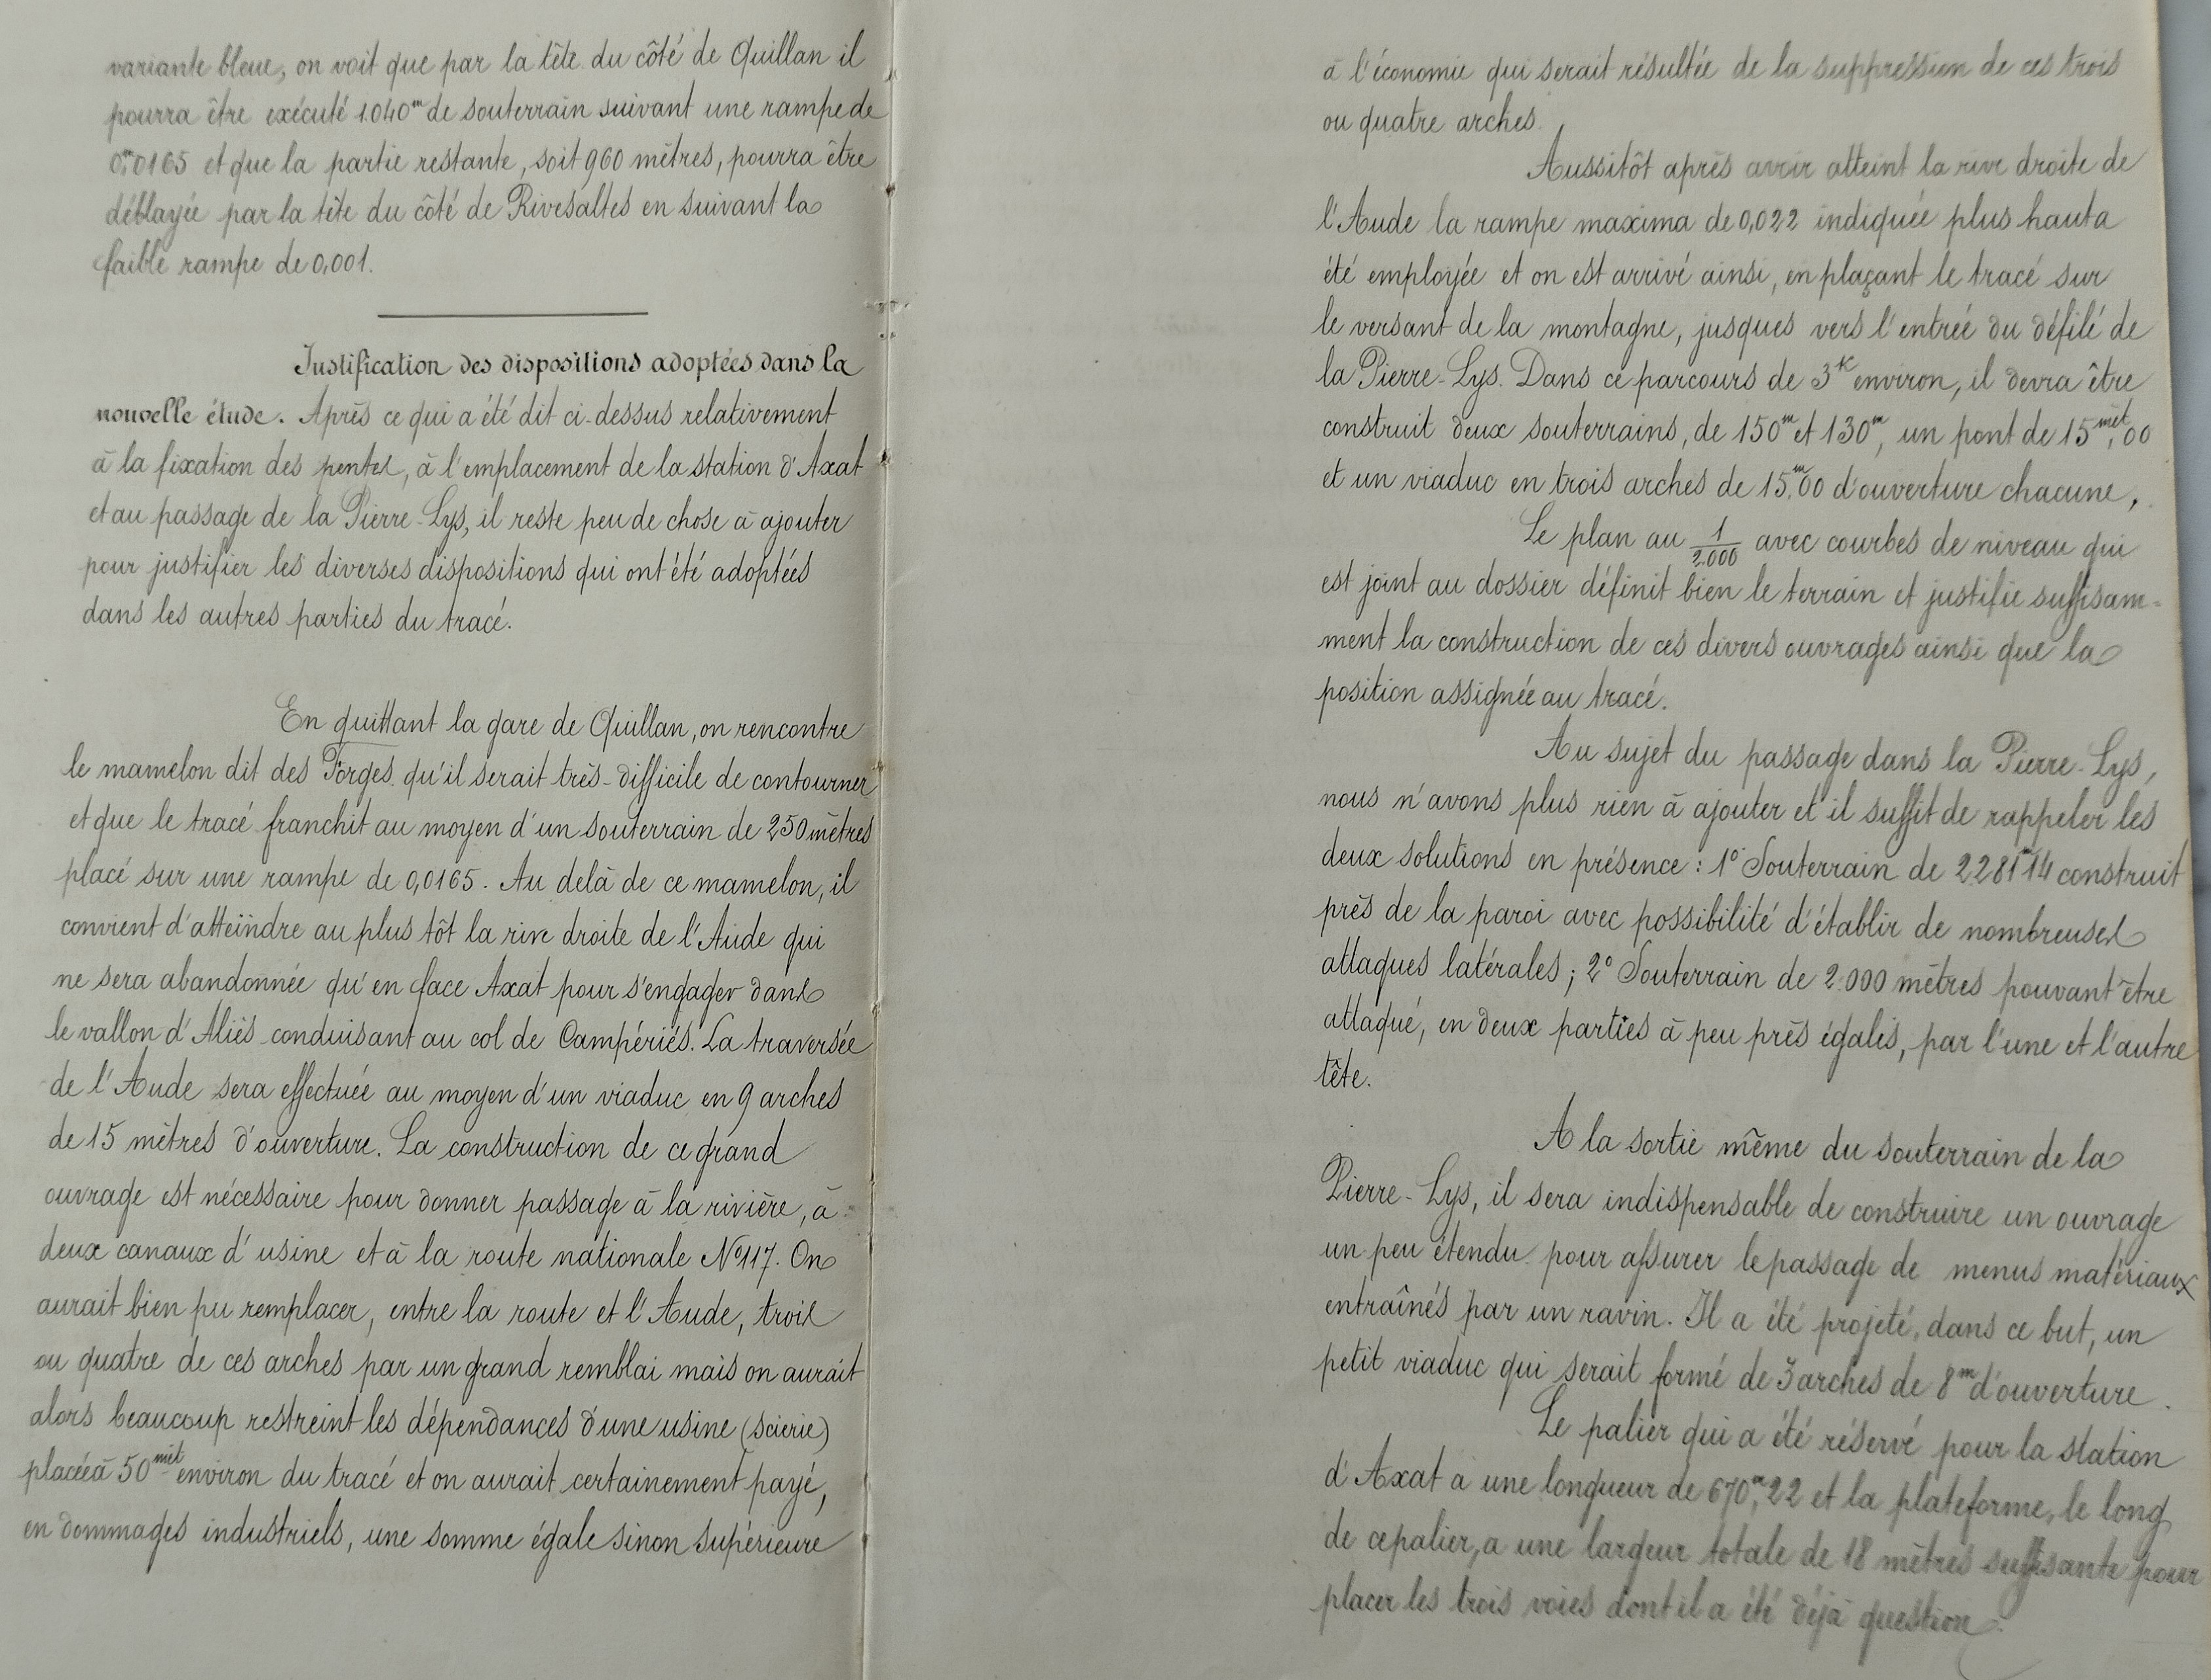 variante bleue, on voit que par la tête du côté de Quillan il
pourra être exécuté 1.040m de souterrain suivant une rampe de
0m,0165 et que la partie restante, soit 960 mètres, pourra être
déblayée par la tête du côté de Rivesaltes en suivant la
faible rampe de 0,001.
Justification des dispositions adoptées dans la
nouvelle étude. Après ce qui a été dit ci-dessus relativement
à la fixation des pentes, à l'emplacement de la station d'Axat
et au passage de la Pierre-Lys, il reste peu de chose à ajouter
pour justifier les diverses dispositions qui ont été adoptées
dans les autres parties du tracé.
En quittant la gare de Quillan, on rencontre
le mamelon dit des Forges qu'il serait très-difficile de contourner
et que le tracé franchit au moyen d'un souterrain de 250 mètres
placé sur une rampe de 0,0165. Au delà de ce mamelon, il
convient d'atteindre au plus tôt la rive droite de l'Aude qui
ne sera abandonnée qu'en face Axat pour s'engager dans
le vallon d'Aliès conduisant au col de Campériés. La traversée
de l'Aude sera effectuée au moyen d'un viaduc en 9 arches
de 15 mètres d'ouverture. La construction de ce grand
ouvrage est nécessaire pour donner passage à la rivière, à
deux canaux d'usine et à la route nationale No 117. On
aurait bien pu remplacer, entre la route et l'Aude, trois
ou quatre de ces arches par un grand remblai mais on aurait
alors beaucoup restreint les dépendances d'une usine (scierie)
placée à 50 mèt environ du tracé et on aurait certainement payé,
en dommages industriels, une somme égale sinon supérieure
à l'économie qui serait résultée de la suppression de ces trois
ou quatre arches.
Aussitôt après avoir atteint la rive droite de
l'Aude la rampe maxima de 0,022 indiquée plus haut a
été employée et on est arrivé ainsi, en plaçant le tracé sur
le versant de la montagne, jusques vers l'entrée du défilé de
la Pierre-Lys. Dans ce parcours de 3K environ, il devra être
construit deux souterrains, de 150m et 130m, un pont de 15mèt,00
et un viaduc en trois arches de 15m,00 d'ouverture chacune,
Le plan au 1/2.000 avec courbes de niveau qui
est joint au dossier définit bien le terrain et justifie suffisam-
ment la construction de ces divers ouvrages ainsi que la
position assignée au tracé.
Au sujet du passage dans la Pierre-Lys,
nous n'avons plus rien à ajouter et il suffit de rappeler les
deux solutions en présence : 1o Souterrain de 2281m14 construit
près de la paroi avec possibilité d'établir de nombreuses
attaques latérales ; 2o Souterrain de 2.000 mètres pouvant être
attaqué, en deux parties à peu près égales, par l'une et l'autre
tête.
A la sortie même du souterrain de la
Pierre-Lys, il sera indispensable de construire un ouvrage
un peu étendu pour assurer le passage de menus matériaux
entraînés par un ravin. Il a été projeté, dans ce but, un
petit viaduc qui serait formé de 3 arches de 8m d'ouverture.
Le palier qui a été réservé pour la station
d'Axat a une longueur de 670m,22 et la plateforme, le long
de ce palier, a une largeur totale de 18 mètres suffisante pour
placer les trois voies dont il a été déjà question.